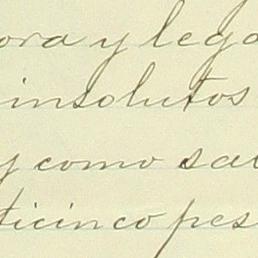 ora y lega
insolutos
y como sal
ticinco pes